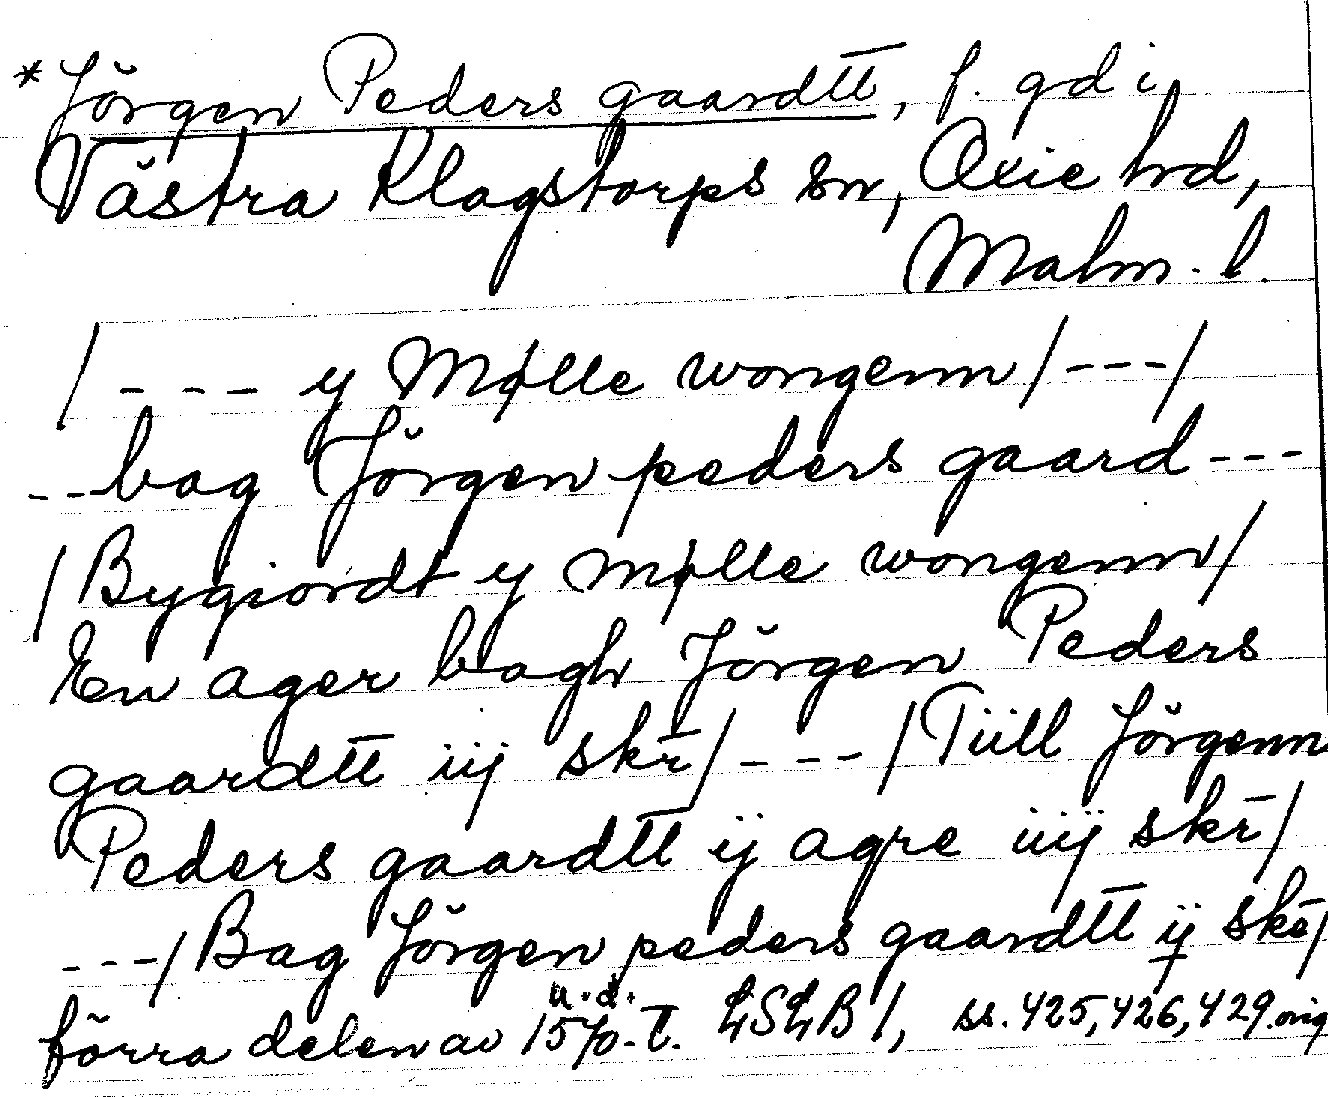 * Jörgen Peders gaardtt, f. gd i
Västra Klagstorps sn, Oxie hd,
Malm. l.
/ - - - y Mølle wongenn / - - - /
- - - bag Jörgen peders gaard - - -
/ Bygiordt y Mølle wongenn /
En ager bagh Jörgen Peders
gaardtt iij skr̄ / - - - / Tiill Jörgenn
Peders gaardtt ij agre iiij skr̄ /
- - - / Bag Jörgen peders gaardtt ij skē /
u.d.
förra delen av 1570-t. LSLB 1, ss. 425, 426, 429. orig